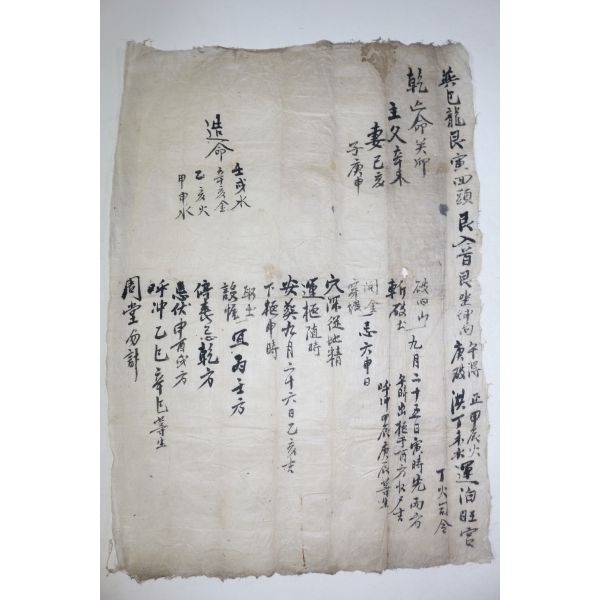 巽巳龍艮寅回頭艮入首艮坐坤向 午得 庚破 正甲辰火 洪丁未水運泊旺宮
丁火司金
乾亡命癸卯
主父辛未
妻己亥
子庚申
造命
壬戌水
辛亥金
乙亥火
甲申水
破旧山九月二十五日寅時先丙方
斬破土
午時出柩
呼冲甲辰庚辰等生
開金
穿壙忌六甲日
穴深從地精
運柩随時
安葬九月二十六日乙亥吉
下柩申時
取土
設帷宜丙壬方
停喪忌乾方
忌伏申酉戌方
呼冲乙巳辛巳等生
周堂勿計